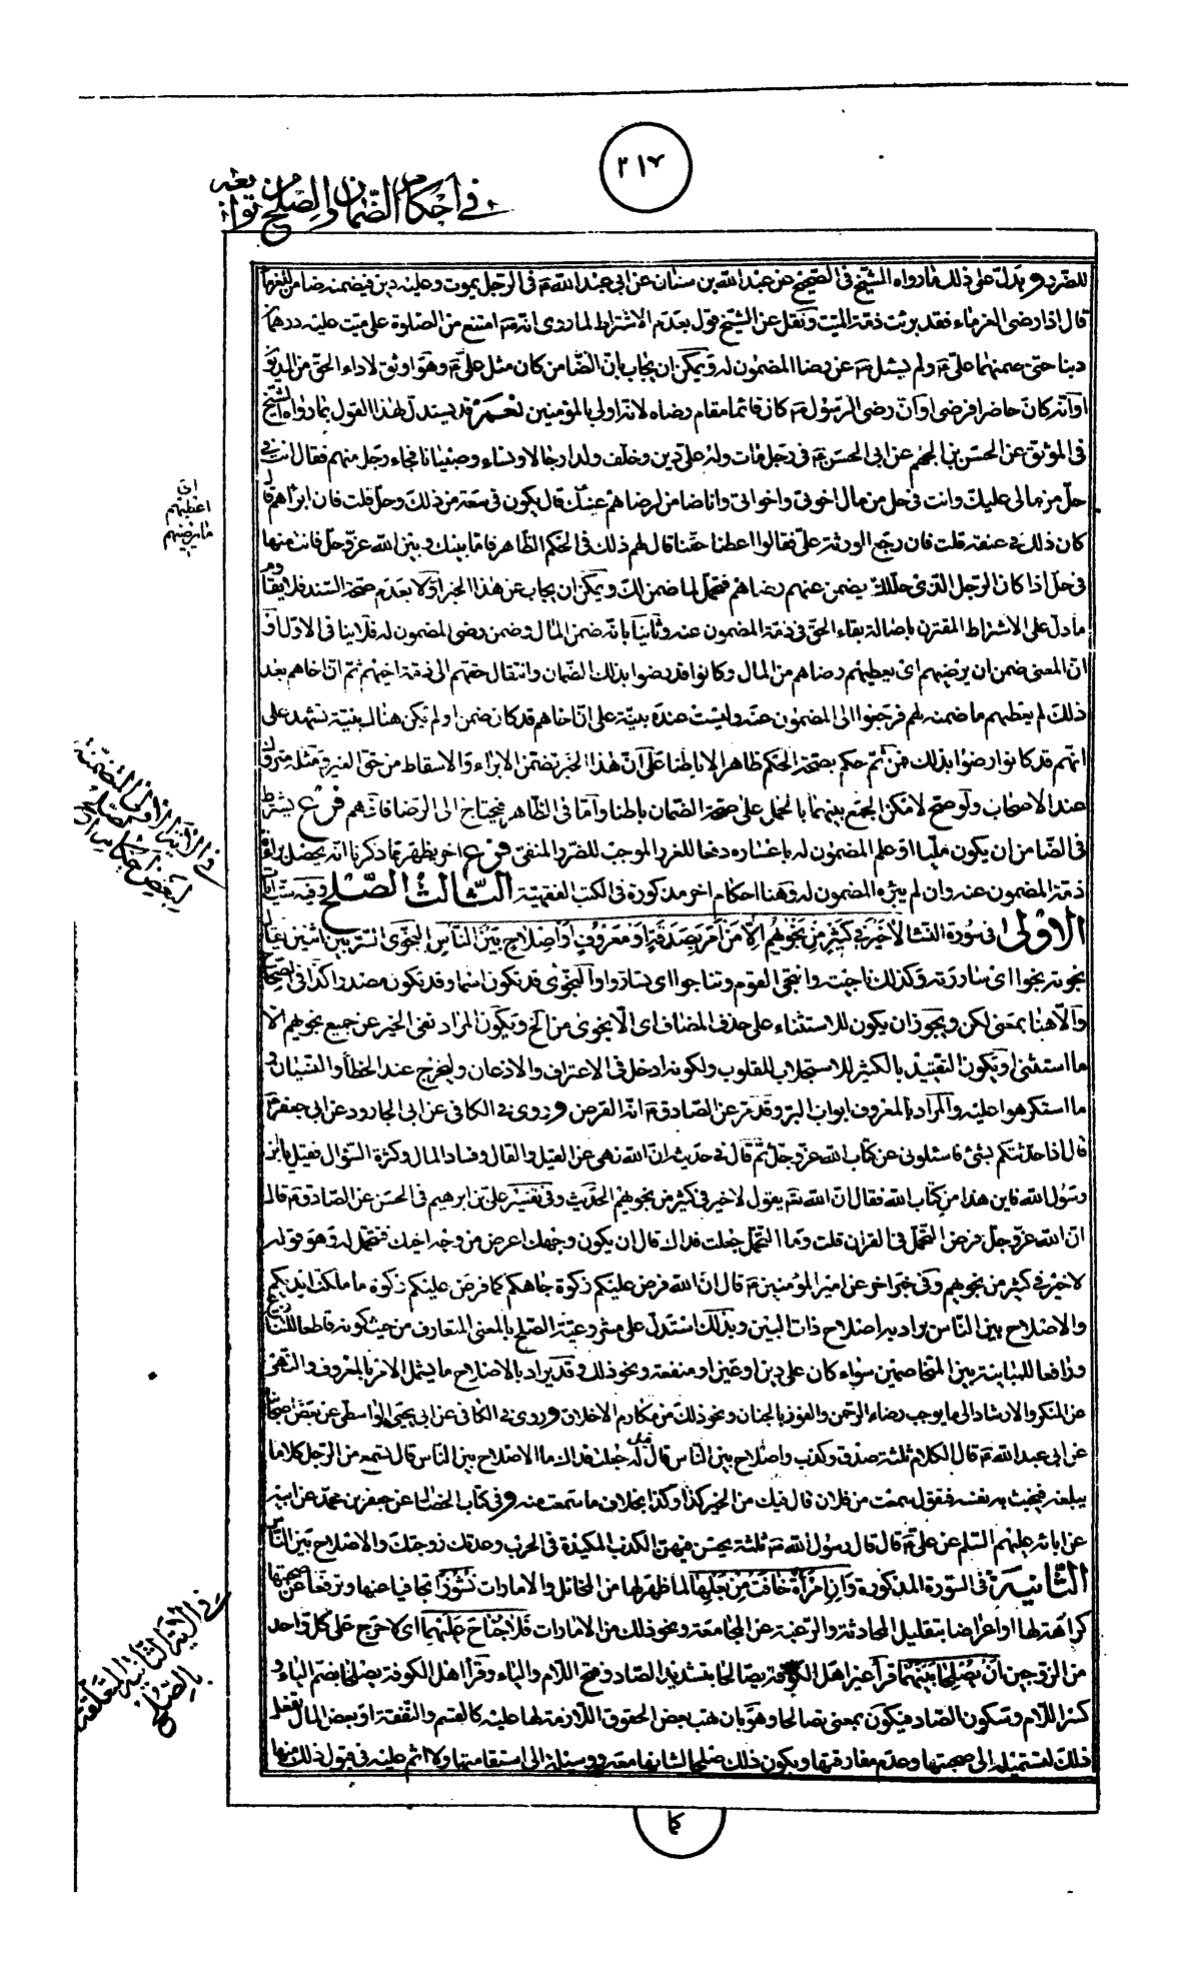 ٢١٧
في احكام الضمان والصلح من توابعه
للضرر ويدل على ذلك ما رواه الشيخ في الصحيح عن عبد الله بن سنان عن ابي عبد الله ع في الرجل يموت وعليه دين فيضمنه ضامن للغرماء
قال اذا رضى الغرماء فقد برئت ذمة الميت ونقل عن الشيخ قول بعدم الاشتراط لما روى انه ص امتنع من الصلوة على ميت عليه درهما
دينا حتى ضمنهما علي ع ولم يسئل ص عن رضا المضمون له ويمكن ان يجاب بان الضامن كان مثل علي ع وهو اوثق لاداء الحق من المديو
او انه كان حاضرا فرضى او ان رضى الرسول ص كان قائما مقام رضاه لانه اولى بالمؤمنين نعم قد يستدل لهذا القول بما رواه الشيخ
في الموثق عن الحسن بن الجهم عن ابي الحسن ع في رجل مات وله علي دين وخلف ولدا رجالا ونساء وصبيانا فجاء رجل منهم فقال انت في
حل من مالي عليك وانت في حل من مال اخوتي واخواتي وانا ضامن لرضاهم عنك قال يكون في سعة من ذلك وحل قلت فان لم يعطهم قا
كان ذلك في عنقه قلت فان رجع الورثة علي فقالوا اعطنا حقنا قال لهم ذلك في الحكم الظاهر فاما بينك وبين الله عز وجل فانت منها
في حل اذا كان الرجل الذي حلك يضمن عنهم رضاهم فيحمل لما ضمن لك ويمكن ان يجاب عن هذا الخبر اولا بعدم صحة السند فلا يقاوم
ما دل على الاشتراط المقترن باصالة بقاء الحق في ذمة المضمون عنه وثانيا بانه ضمن المال وضمن رضى المضمون له فلا ينافى الاول او
ان المعنى ضمن ان يرضيهم اى يعطيهم رضاهم من المال وكانوا قد رضوا بذلك الضمان وانتقال حقهم الى ذمة اخيهم ثم ان اخاهم بعد
ذلك لم يعطهم ما ضمنه لهم فرجعوا الى المضمون عنه وليست عنده بينة على ان اخاهم قد كان ضمن او لم يكن هناك بينة تشهد على
انهم قد كانوا رضوا بذلك فمن ثم حكم بصحة الحكم ظاهرا لا باطنا على ان هذا الخبر تضمن الابراء والاسقاط من حق الغير ومثله متروك
عند الاصحاب ولو صح لامكن الجمع بينهما بالحمل على صحة الضمان باطنا واما في الظاهر فيحتاج الى الرضا فافهم فرع يشترط
في الضامن ان يكون مليا او علم المضمون له باعساره دفعا للغرر الموجب للضرر المنفى فرع اخر يظهر مما ذكرنا انه يحصل براءة
ذمة المضمون عنه وان لم يبرئه المضمون له وهنا احكام اخر مذكورة في الكتب الفقهية الثالث الصلح وفيه ست ايات
الاولى في سورة النساء لا خير في كثير من نجويهم الا من امر بصدقة او معروف او اصلاح بين الناس النجوى السر بين اثنين يقال
نجوته نجوا اى ساررته وكذلك ناجيته وانتجى القوم وتناجوا اى تساروا والنجوى قد تكون اسما وقد تكون مصدرا كذا في الصحاح
والا هنا بمعنى لكن ويجوز ان يكون للاستثناء على حذف المضاف اى الا نجوى من الخ ويكون المراد نفى الخير عن جميع نجويهم الا
ما استثنى او يكون التقييد بالكثير للاستجلاب للقلوب ولكونه ادخل في الاعتراف والاذعان وليخرج عند الخطأ والنسيان و
ما استكرهوا عليه والمراد بالمعروف ابواب البر وقد مر عن الصادق ع انه القرض وروى في الكافي عن ابي الجارود عن ابي جعفر ع
قال اذا حدثتكم بشئ فاسئلوني عن كتاب الله عز وجل ثم قال في حديثه ان الله نهى عن القيل والقال وفساد المال وكثرة السؤال فقيل يا بن
رسول الله فاين هذا من كتاب الله فقال ان الله تع يقول لا خير في كثير من نجويهم الحديث وفي تفسير علي بن ابرهيم في الحسن عن الصادق ع قال
ان الله عز وجل فرض التحمل في القران قلت وما التحمل جعلت فداك قال ان يكون وجهك اعرض من وجه اخيك فتحمل له وهو قوله
لا خير في كثير من نجويهم وفي خبر اخر عن امير المؤمنين ع قال ان الله فرض عليكم زكوة جاهكم كما فرض عليكم زكوة ما ملكت ايديكم
والاصلاح بين الناس يراد به اصلاح ذات البين وبذلك استدل على مشروعية الصلح بالمعنى المتعارف من حيث كونه قاطعا للتنازع
ورافعا للمباينة بين المتخاصمين سواء كان على دين او عين او منفعة ونحو ذلك وقد يراد بالاصلاح ما يشمل الامر بالمعروف والنهى
عن المنكر والارشاد الى ما يوجب رضاء الرحمن والفوز بالجنان ونحو ذلك من مكارم الاخلاق وروى في الكافي عن ابي يحيى الواسطي عن بعض اصحابنا
عن ابي عبد الله ع قال الكلام ثلثة صدق وكذب واصلاح بين الناس قال قيل له جعلت فداك ما الاصلاح بين الناس قال تسمع من الرجل كلاما
يبلغه فيخبث به نفسه فتقول سمعت من فلان قال فيك من الخير كذا وكذا بخلاف ما سمعت منه وفي كتاب الخصال عن جعفر بن محمد عن ابيه
عن ابائه عليهم السلم عن علي ع قال قال رسول الله ص ثلثة يحسن فيهن الكذب المكيدة في الحرب وعدتك زوجتك والاصلاح بين الناس
الثانية في السورة المذكورة وان امرأة خافت من بعلها لما ظهر لها من المخائل والامارات نشوزا تجافيا عنها وترفعا عن صحبتها
كراهة لها او اعراضا بتقليل المحادثة والرغبة عن المجامعة ونحو ذلك من الامارات فلا جناح عليهما اى لا حرج على كل واحد
من الزوجين ان يصلحا بينهما قرأ غير اهل الكوفة يصالحا بتشديد الصاد وفتح اللام والباء وقرأ اهل الكوفة يصلحا بضم الياء و
كسر اللام وسكون الصاد فيكون بمعنى تصالحا وهو بان تهب بعض الحقوق اللازمة لها عليه كالقسم والنفقة او بعض المال تفعل
ذلك لتستميله الى صحبتها وعدم مفارقتها ويكون ذلك صلحا لشانها معه ووسيلة الى استقامتها ولا اثم عليه في قبول ذلك منها
كما
اى
اعطيتهم
ما يرضيهم
في الاية الاولى المتضمنة
لبعض احكام الصلح
في الاية الثانية المتعلقة
بالصلح